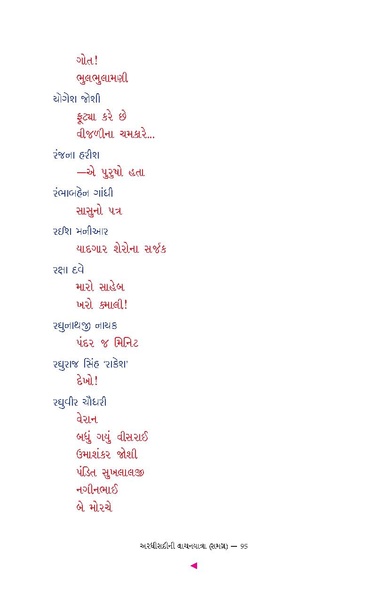 ગોત!
ભુલભુલામણી
યૉગેશ જૉશી
ફૂટ્યા કરે છે
વીજળીના ચમકારે...
રંજના હરીશ
—એ પુરુષો હતા
રંભાબહેન ગાંધી
સાસુનો પત્ર
રઈશ મનીઆર
યાદગાર શેરોના સર્જક
રક્ષા દવે
મારો સાહેબ
ખરો કમાલી!
રઘુનાથજી નાયક
પંદર જ મિનિટ
રઘુરાજ સિંહ ‘રાકેશ’
દેખો!
રઘુવીર ચૌધરી
વેરાન
બધું ગયું વીસરાઈ
ઉમાશંકર જોશી
પંડિત સુખલાલજી
નગીનભાઈ
બે મોરચે
અરધીસદીની વાચનયાત્રા (સમગ્ર) — 95